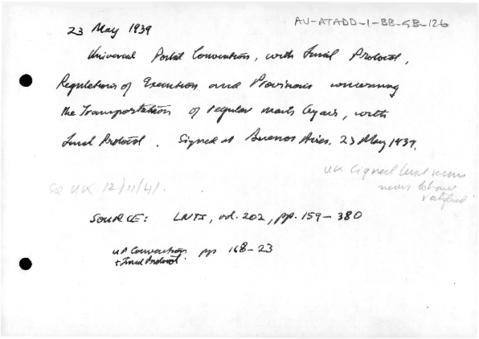 AU-ATADD-1-BB-GB-126
23 May 1939
Universal Postal Convention, with Final Protocol,
Regulations of Execution and Provisions concerning
the Transportation of regular mails by air, with
Final Protocol. Signed at Buenos Aires. 23 May 1939.
UK signed but
never
ratified
UK 12/11/41.
SOURCE: LNTS, vol. 202, pp. 159-380
Convention pp 168-23
+ Final Protocol.